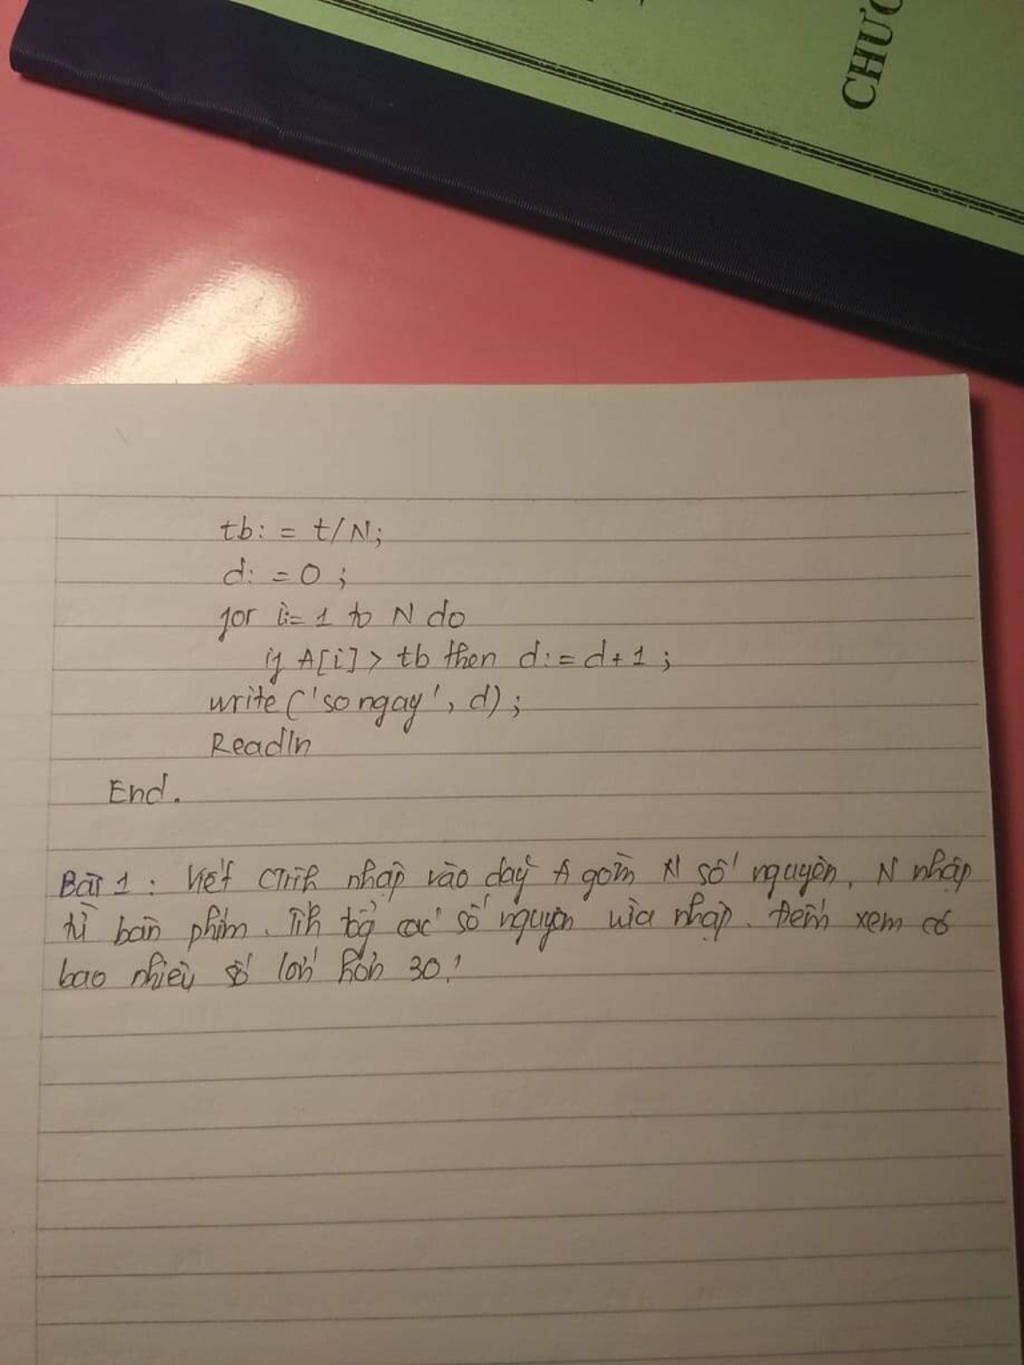 CHƯƠ
tb: = t/N;
d: = 0 ;
for i:= 1 to N do
if A[i] > tb then d: = d + 1 ;
write ('so ngay', d) ;
Readln
End.
Bài 1 : Viết CTrình nhập vào dãy A gồm N số nguyên, N nhập
từ bàn phím. Tính tổng các số nguyên vừa nhập. Đếm xem có
bao nhiêu số lớn hơn 30!